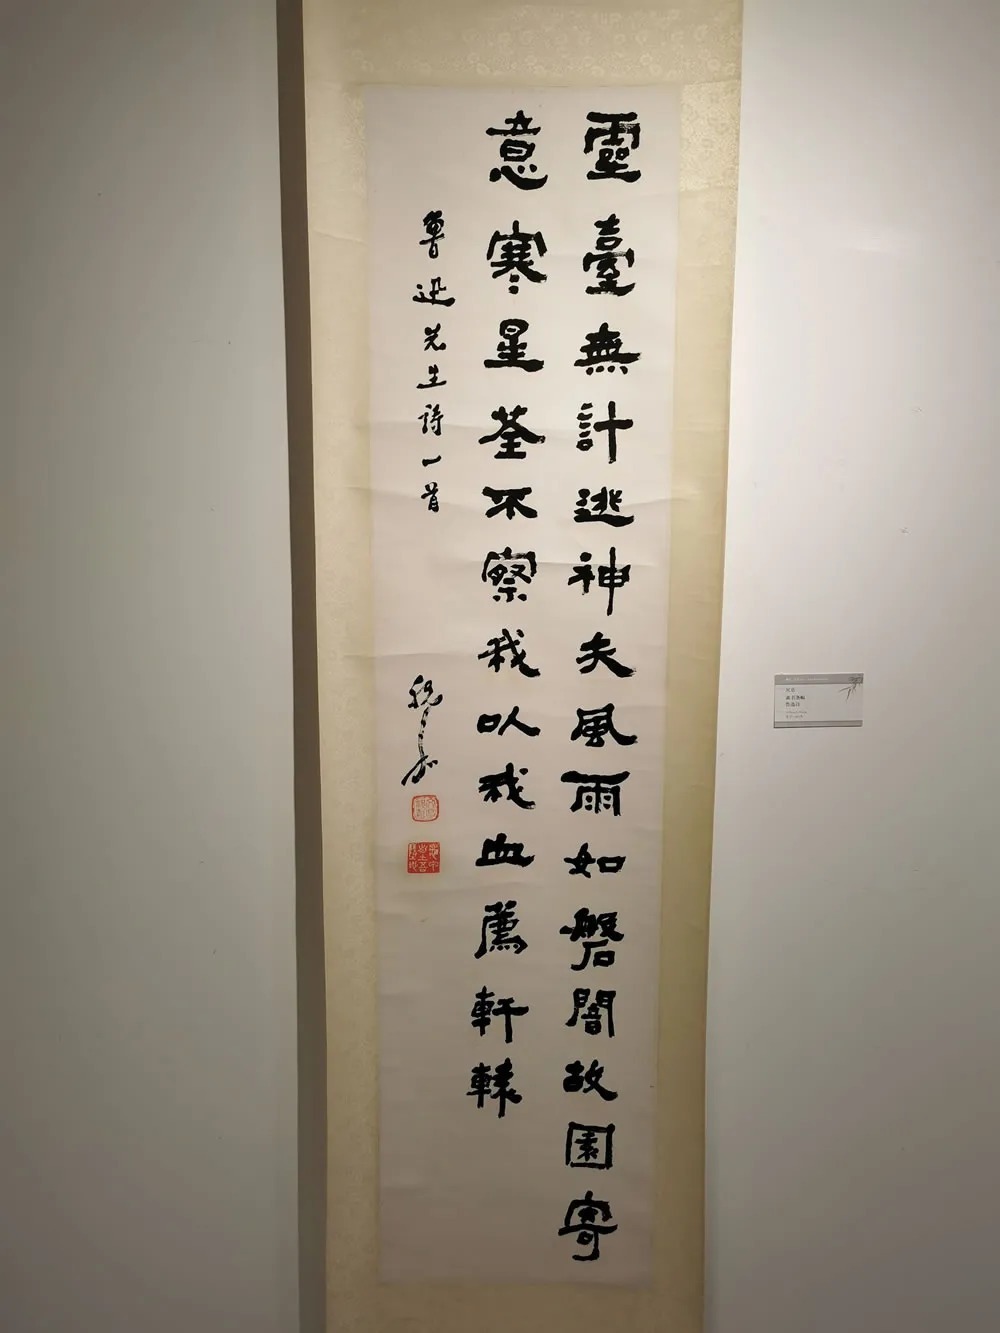 靈臺無計逃神矢風雨如磐闇故園寄
意寒星荃不察我以我血薦軒轅
魯迅先生詩一首